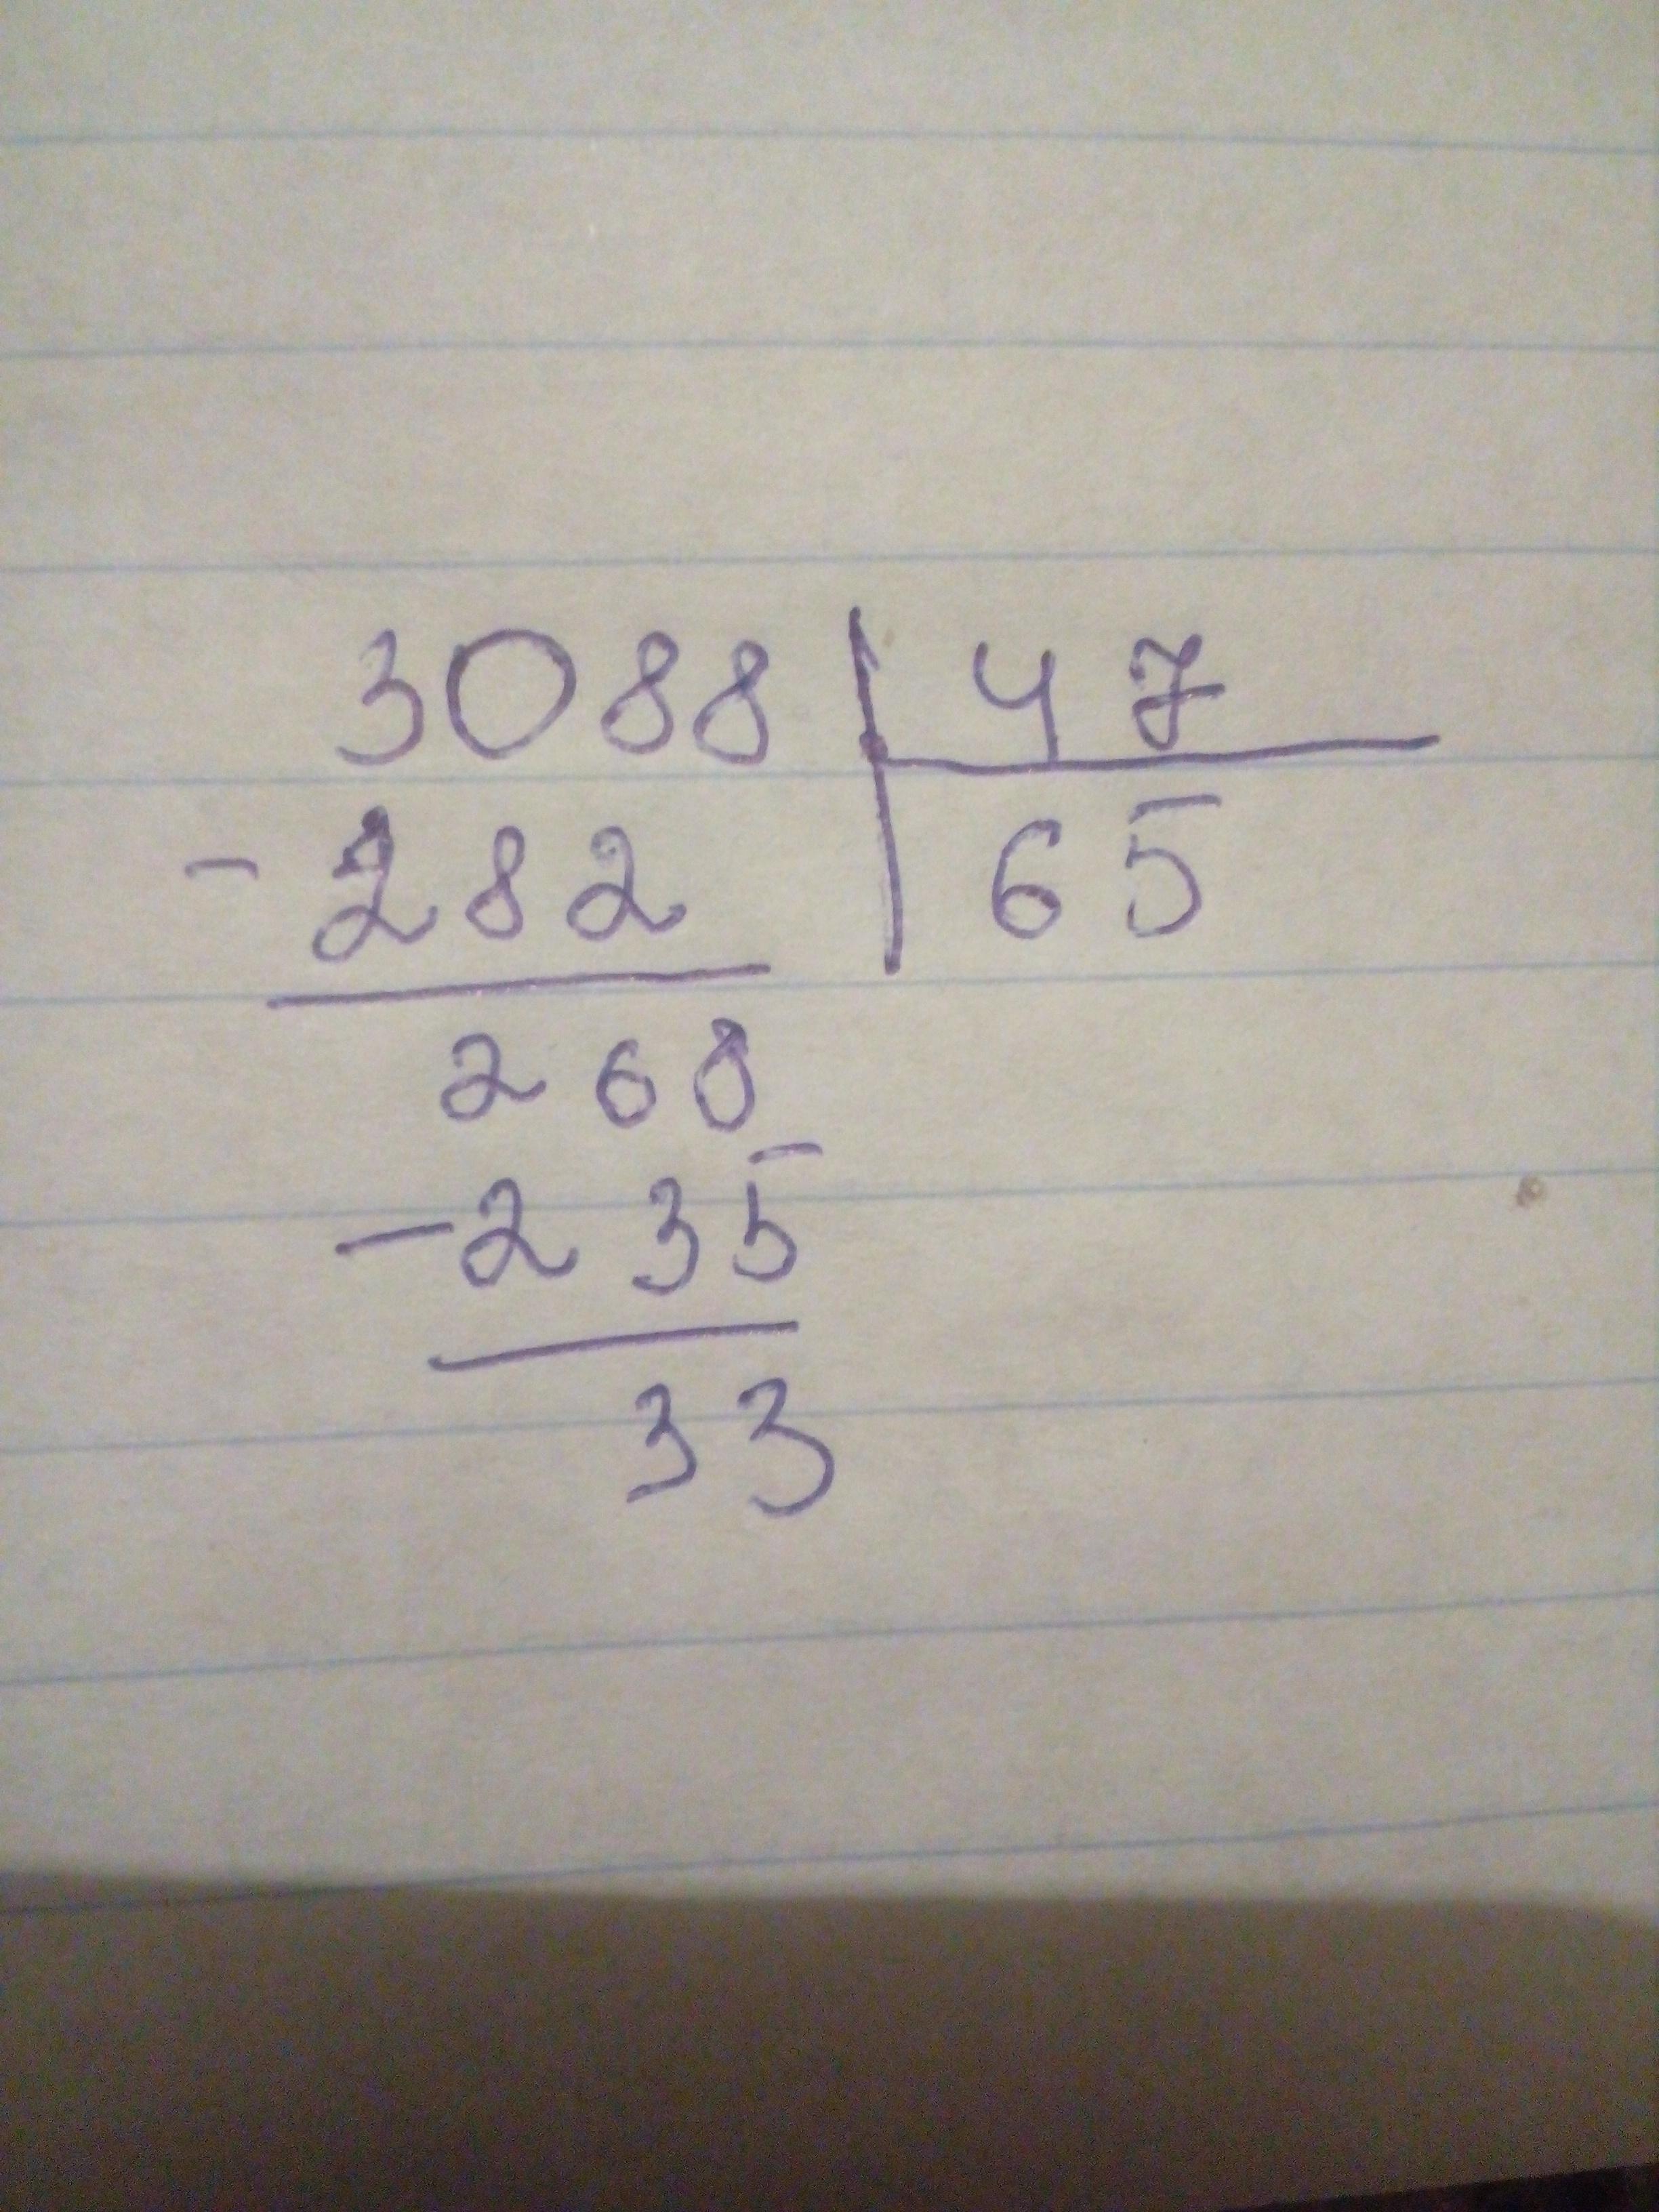 3088 47
- 282 65
268
- 235
33